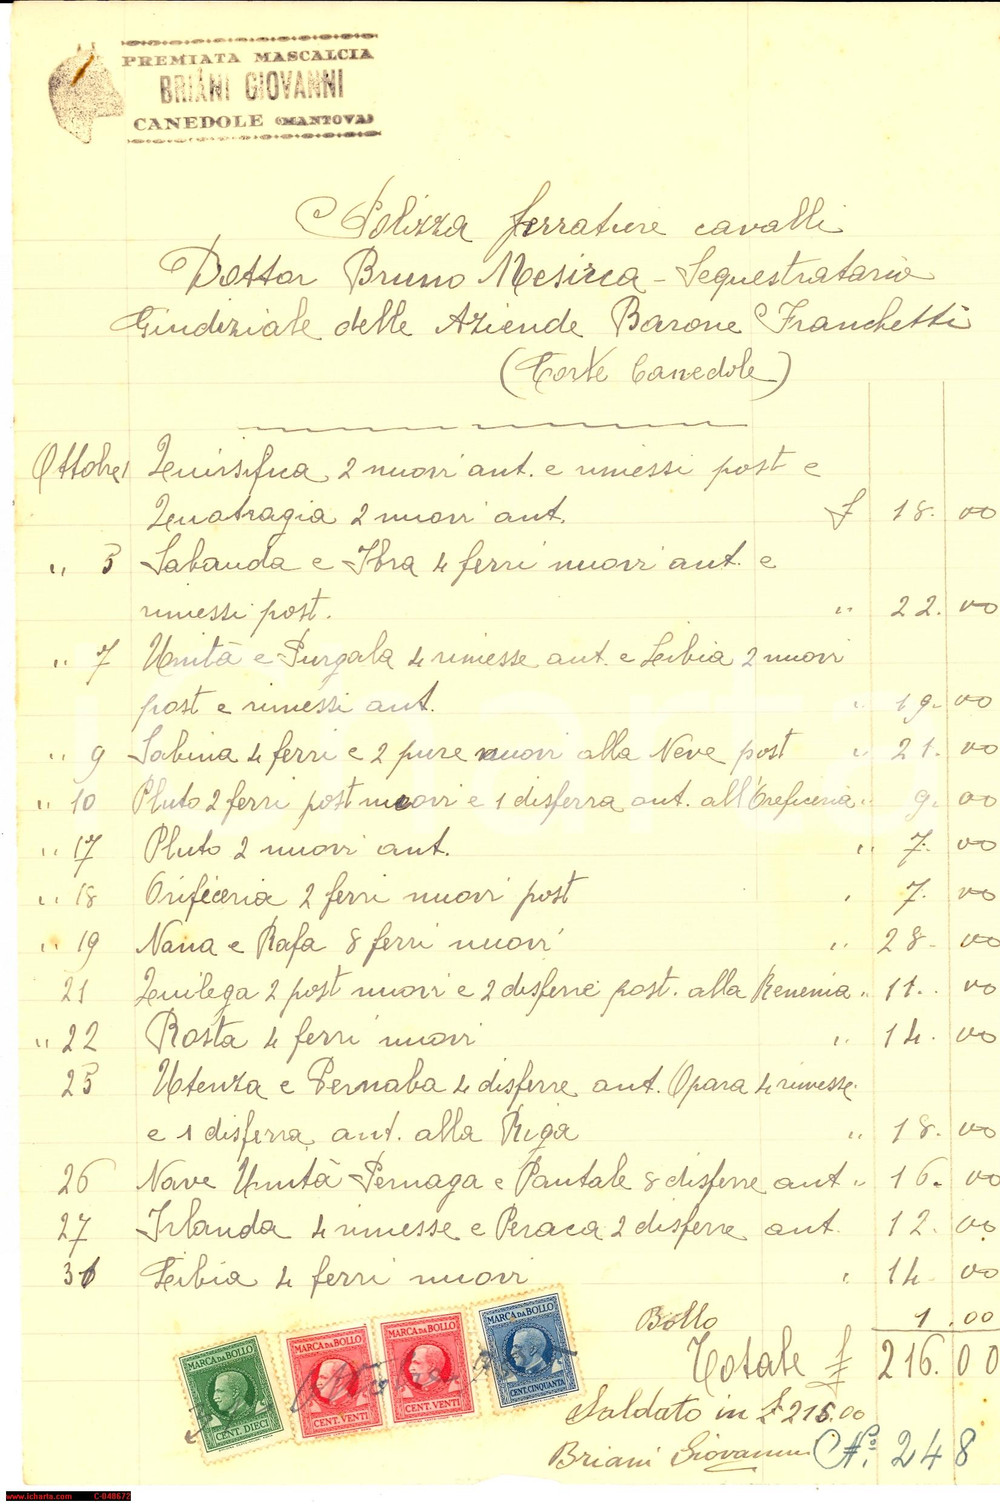 PREMIATA MASCALCIA
BRIANI GIOVANNI
CANEDOLE (MANTOVA)
Polizza ferrature cavalli
Dottor Bruno Mesirca - Sequestratario
Giudiziale delle Aziende Barone Franchetti
(Corte Canedole)
Ottobre 1 2 nuovi ant. e rimessi post e
2 nuovi ant. £ 18.00
" 3 Sabauda e Ibra 4 ferri nuovi ant. e
rimessi post. " 22.00
" 7 Unità e Purgala 4 rimesse ant. e Leibia 2 nuovi
post e rimessi ant. " 19.00
" 9 Sabina 4 ferri e 2 pure nuovi alla Neve post " 21.00
" 10 Pluto 2 ferri post nuovi e 1 disferra ant. all'Oreficeria " 9.00
" 17 Pluto 2 nuovi ant. " 7.00
" 18 Orificeria 2 ferri nuovi post " 7.00
" 19 Nana e Rafa 8 ferri nuovi " 28.00
21 2 post nuovi e 2 disferre post. alla Renenia " 11.00
" 22 Rosta 4 ferri nuovi " 14.00
23 Utenza e Pernaba 4 disferre ant. Opara 4 rimesse
e 1 disferra ant. alla Riga " 18.00
26 Nave Unità Pernaga e Pantale 8 disferre ant " 16.00
27 Irlanda 4 rimesse e Peraca 2 disferre ant. 12.00
31 Leibia 4 ferri nuovi " 14.00
Bollo 1.00
Totale £ 216.00
Saldato in £ 215.00
Briani Giovanni N. 248
MARCA DA BOLLO
CENT. DIECI
MARCA DA BOLLO
CENT. VENTI
MARCA DA BOLLO
CENT. VENTI
MARCA DA BOLLO
CENT. CINQUANTA
www.icharta.com C-048672